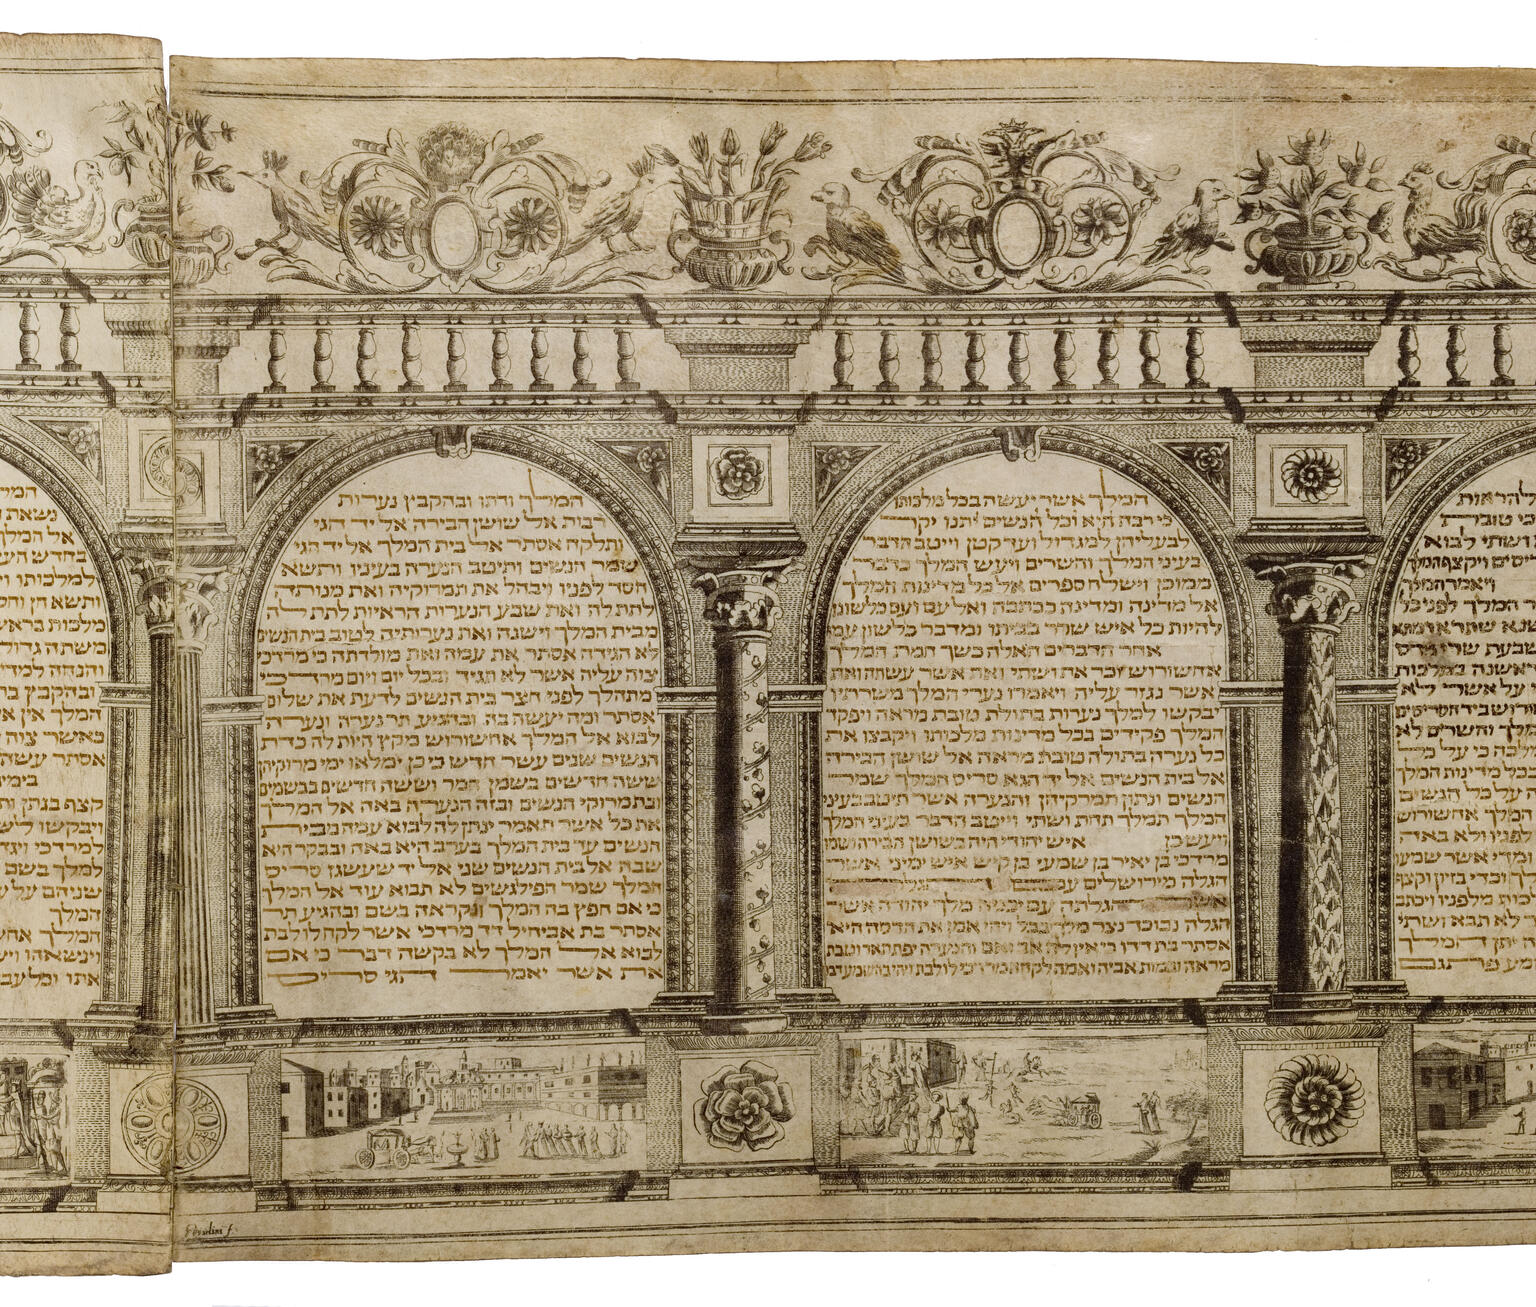 להראות
כי טובת
ושתי לבוא
ויקצף המלך
ויאמר המלך
המלך לפני כל
שבעת שרי פרס
ראשנה במלכות
על אשר לא
ביד הסריסים
המלך והשרים לא
כי על כל
בכל מדינות המלך
על כל הנשים
המלך אחשורוש
לפניו ולא באה
ומדי אשר שמעו
וכדי בזיון וקצף
מלכות מלפניו ויכתב
לא תבא ושתי
יתן המלך
פתגם
המלך אשר יעשה בכל מלכותו
כי רבה היא וכל הנשים יתנו יקר
לבעליהן למגדול ועד קטן וייטב הדבר
בעיני המלך והשרים ויעש המלך כדבר
ממוכן וישלח ספרים אל כל מדינות המלך
אל מדינה ומדינה ככתבה ואל עם ועם כלשונו
להיות כל איש שרר בביתו ומדבר כלשון עמו
אחר הדברים האלה כשך חמת המלך
אחשורוש זכר את ושתי ואת אשר עשתה ואת
אשר נגזר עליה ויאמרו נערי המלך משרתיו
יבקשו למלך נערות בתולות טובות מראה ויפקד
המלך פקידים בכל מדינות מלכותו ויקבצו את
כל נערה בתולה טובת מראה אל שושן הבירה
אל בית הנשים אל יד הגא סריס המלך שמר
הנשים ונתון תמרקיהן והנערה אשר תיטב בעיני
המלך תמלך תחת ושתי וייטב הדבר בעיני המלך
ויעש כן איש יהודי היה בשושן הבירה ושמו
מרדכי בן יאיר בן שמעי בן קיש איש ימיני אשר
הגלה מירושלים עם הגלה
אשר הגלתה עם יכניה מלך יהודה אשר
הגלה נבוכדנצר מלך בבל ויהי אמן את הדסה היא
אסתר בת דדו כי אין לה אב ואם והנערה יפת תאר וטובת
מראה ובמות אביה ואמה לקחה מרדכי לו לבת ויהי בהשמע דבר
המלך ודתו ובהקבץ נערות
רבות אל שושן הבירה אל יד הגי
ותלקח אסתר אל בית המלך אל יד הגי
שמר הנשים ותיטב הנערה בעיניו ותשא
חסד לפניו ויבהל את תמרוקיה ואת מנותה
לתת לה ואת שבע הנערות הראיות לתת לה
מבית המלך וישנה ואת נערותיה לטוב בית הנשים
לא הגידה אסתר את עמה ואת מולדתה כי מרדכי
צוה עליה אשר לא תגיד ובכל יום ויום מרדכי
מתהלך לפני חצר בית הנשים לדעת את שלום
אסתר ומה יעשה בה ובהגיע תר נערה ונערה
לבוא אל המלך אחשורוש מקץ היות לה כדת
הנשים שנים עשר חדש כי כן ימלאו ימי מרוקיהן
ששה חדשים בשמן המר וששה חדשים בבשמים
ובתמרוקי הנשים ובזה הנערה באה אל המלך
את כל אשר תאמר ינתן לה לבוא עמה מבית
הנשים עד בית המלך בערב היא באה ובבקר היא
שבה אל בית הנשים שני אל יד שעשגז סריס
המלך שמר הפילגשים לא תבוא עוד אל המלך
כי אם חפץ בה המלך ונקראה בשם ובהגיע תר
אסתר בת אביחיל דד מרדכי אשר לקח לו לבת
לבוא אל המלך לא בקשה דבר כי אם
את אשר יאמר הגי סריס
נשאה
אל המלך
בחדש
למלכותו
ותשא חן
מלכות בראש
משתה גדול
והנחה למדי
ובהקבץ
המלך אין
כאשר צוה
אסתר עשה
בימי
קצף בגתן
ויבקשו
למרדכי ויגד
למלך בשם
שניהם על
המלך
המלך
וינשאהו
אתו וכל עב